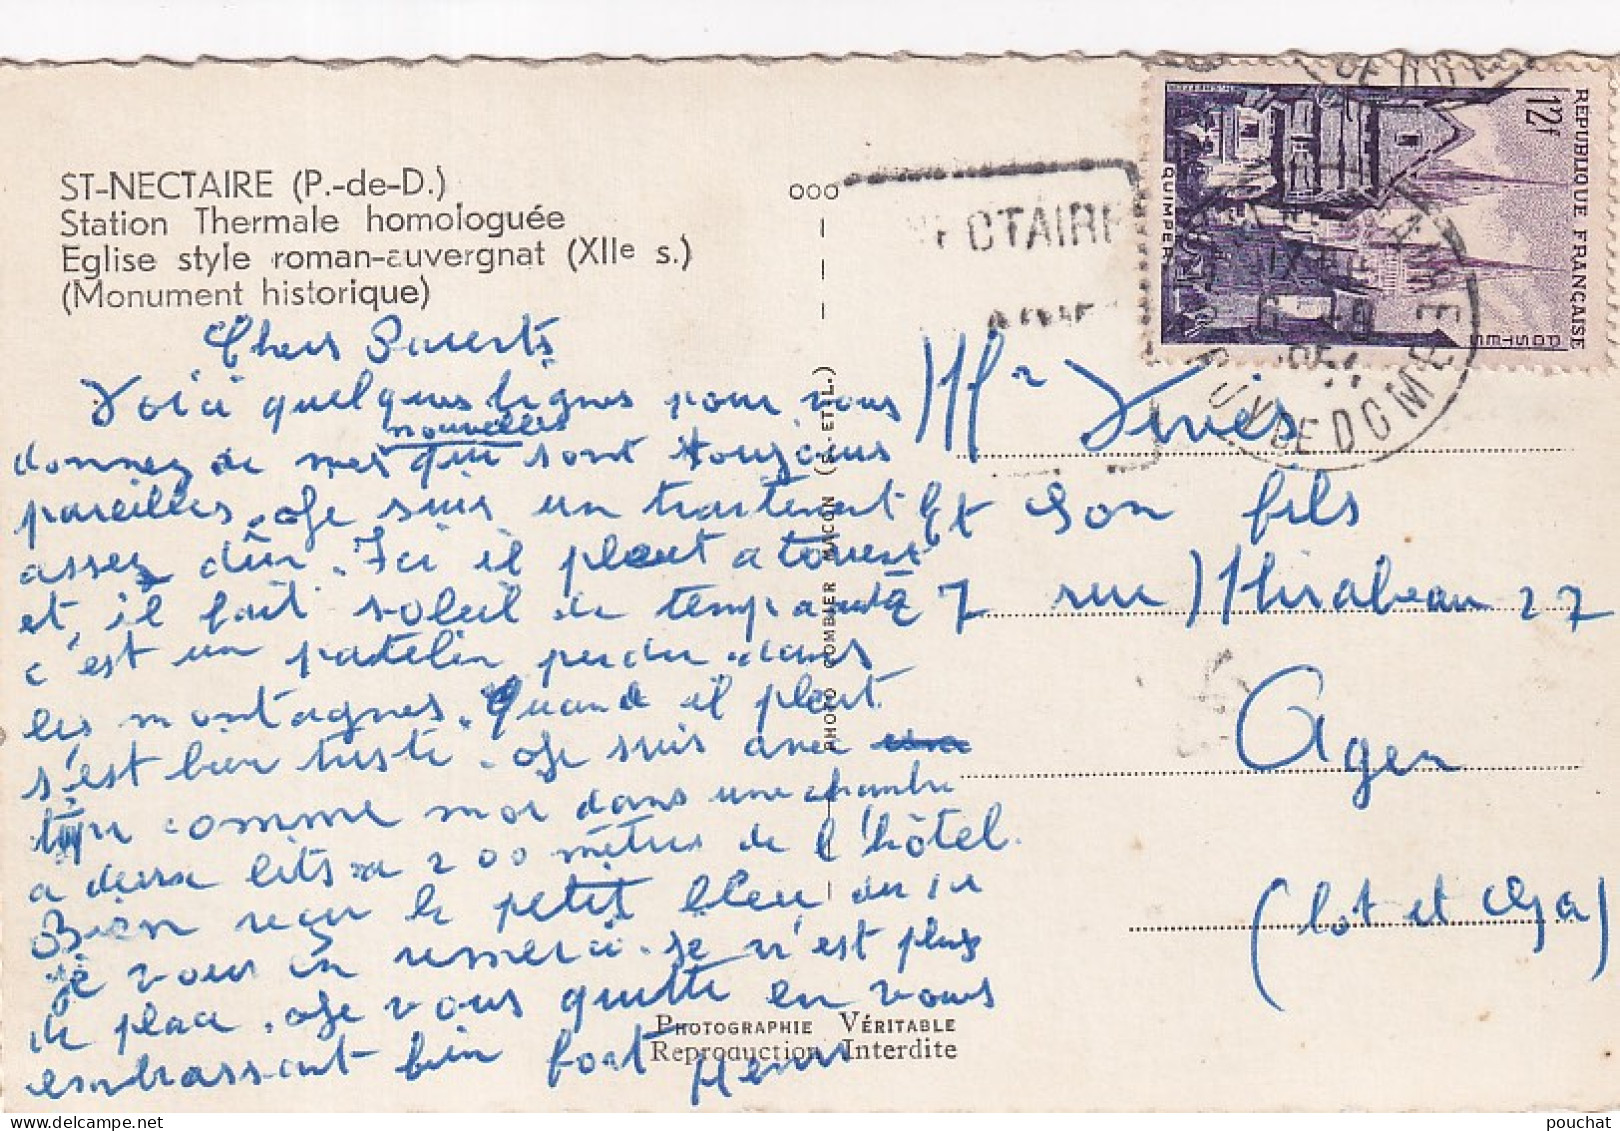 ST-NECTAIRE (P.-de-D.)
Station Thermale homologuée
Eglise style roman-auvergnat (XIIe s.)
(Monument historique)
Chers Parents
Voici quelques lignes pour vous
nouvelles
donnez de mes qui sont toujours
pareilles. Je suis un traitement
assez dûr. Ici il pleut a torrent
et il fait soleil de temp a autre
c'est un patelin perdu dans
les montagnes. Quand il pleut
s'est bien triste. Je suis avec
type comme moi dans une chambre
a deux lits a 200 mètres de l'hôtel.
Bien reçu le petit bleu du
Je vous en remerci. Je n'est plus
de place. Je vous quitte en vous
embrassant bien fort Henri
PHOTO COMBIER MACON (S.-ET-L.)
PHOTOGRAPHIE VÉRITABLE
Reproduction Interdite
ooo
NECTAIRE
REPUBLIQUE FRANÇAISE
12f
POSTES
QUIMPER
PUY DE DOME
Mr Vivès
Et Son fils
7 rue Mirabeau 27
Agen
(Lot et Ga)
pouchat